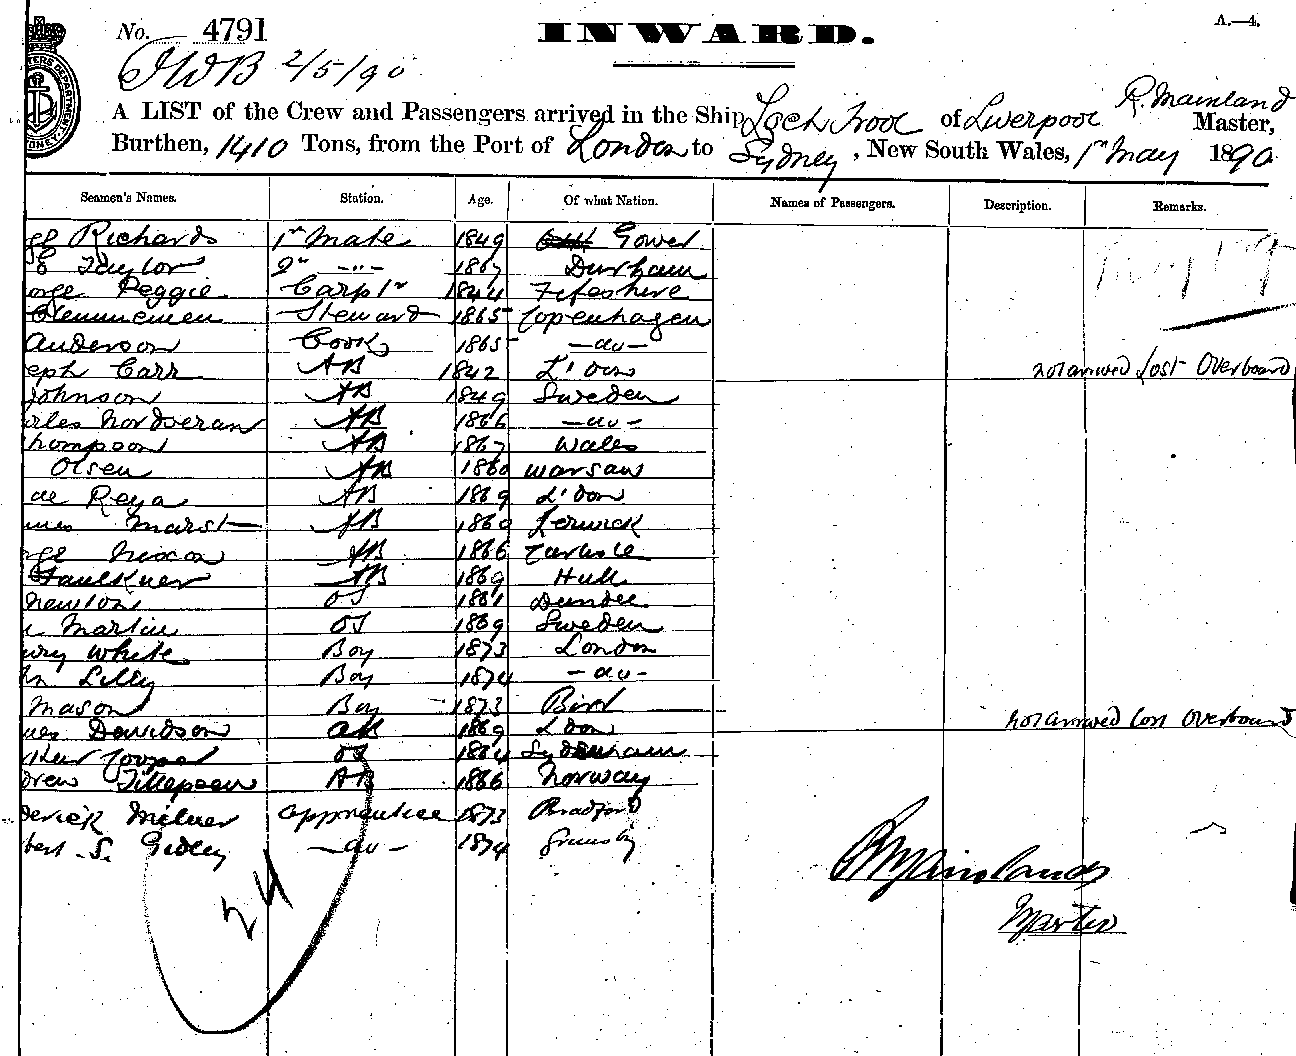 No. 4791 INWARD. A.—4.
2/5/90
A LIST of the Crew and Passengers arrived in the Ship Loch Trool of Liverpool R. Mainland Master,
Burthen, 1410 Tons, from the Port of London to Sydney, New South Wales, 1st May 1890
Seamen's Names. Station. Age. Of what Nation. Names of Passengers. Description. Remarks.
Richards 1st Mate 1849 Gower
Taylor 2" —"— 1867 Durham
orge Peggie Carptr 1844 Fifeshire
Steward 1865 Copenhagen
Anderson Cook 1865 —do—
eph Carr AB 1842 L'don not arrived Lost Overboard
Johnson AB 1849 Sweden
rles Nordseran AB 1866 —do—
Thompson AB 1867 Wales
Olsen AB 1860 Warsaw
de Reya AB 1869 L'don
mes Marst AB 1869 Lerwick
rge Nixon AB 1866 Carlisle
Faulkner AB 1869 Hull
Newton OS 1861 Dundee
Martin OS 1869 Sweden
nry White Boy 1873 London
hn Lilly Boy 1874 —do—
Mason Boy 1873
mes Davidson AB 1869 L'don not arrived Lost Overboard
Cooper OS 1864 Sydenham
drew Tillepsen AB 1866 Norway
derick Milner apprentice 1873 Bradford
bert S. Gidley —do— 1874 Grimsby
24
R Mainland
Master